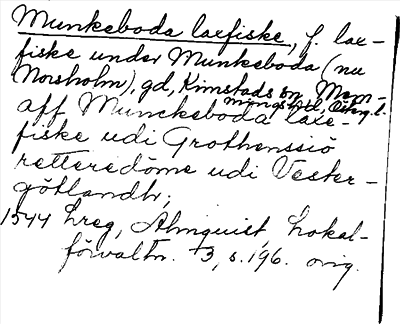 Munkeboda laxfiske, f. lax-
fiske under Munkeboda (nu
Norsholm), gd, Kimstads sn, Mem-
mings hd, Östg. l.
aff Munckeboda laxe-
fiske udi Grothenssiö
retteredöme udi Vester-
götlandh;
1544 hreg, Almquist, Lokal-
förvaltn. 3, s. 196. orig.